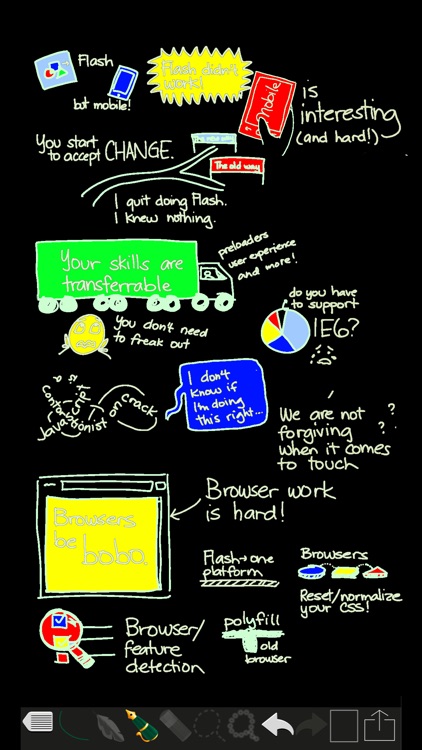 Flash
but mobile!
Flash didn't
work!
Mobile
is
interesting
(and hard!)
You start
to accept CHANGE.
The old way
I quit doing Flash.
I knew nothing.
Your skills are
transferrable
preloaders
user experience
and more!
You don't need
to freak out
do you have
to support
IE6?
Javascript is a
contortionist
on crack
I don't
know if
I'm doing
this right...
We are not
forgiving
when it comes
to touch
? ? ?
Browsers
be
bobo.
Browser work
is hard!
Flash→one
platform
Browsers
Reset/normalize
your CSS!
Browser/
feature
detection
polyfill
old
browser